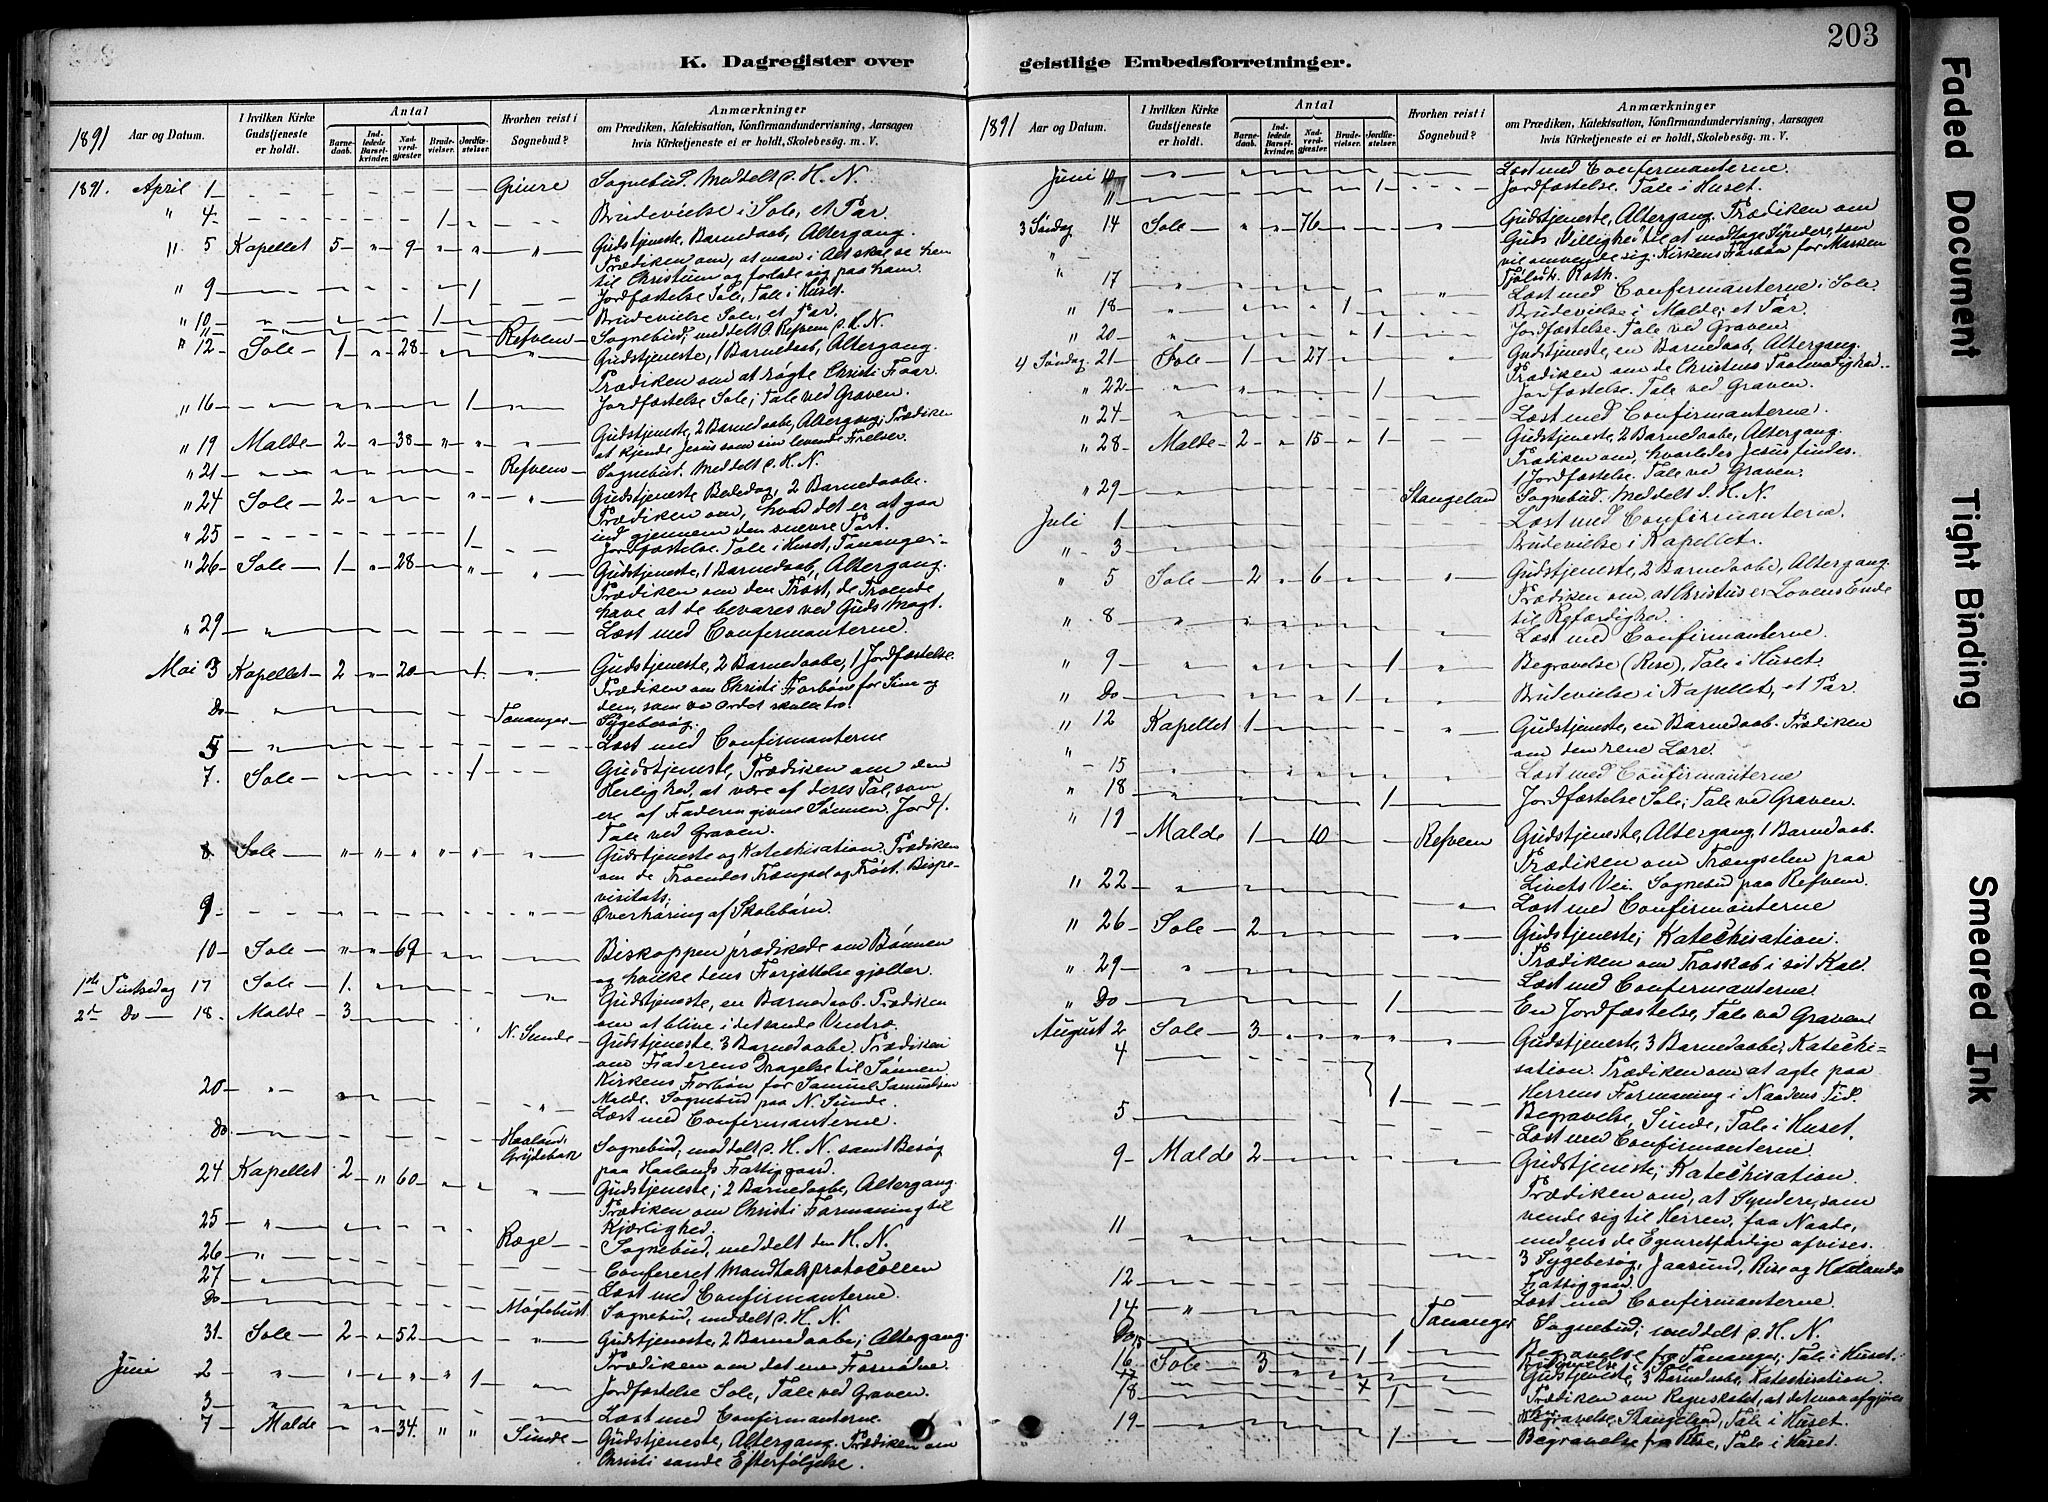 203
K. Dagregister over
1891
Aar og Datum.
I hvilken Kirke Gudstjeneste er holdt.
Antal
Barnedaab.
Indledede Barselkvinder.
Nadverdgjæster.
Brudevielser.
Jordfæstelser.
Hvorhen reist i Sognebud?
Anmærkninger
om Prædiken, Katekisation, Konfirmandundervisning, Aarsagen
hvis Kirketjeneste ei er holdt, Skolebesøg. m. V.
1891. April 1 Giure Sognebud. Meddelt s. H. N.
" 4 1 Brudevielse i Sole, et Par.
" 5 Kapellet 5 " 9 " " " Gudstjeneste, Barnedaab, Altergang.
Prædiken om, at man i Alt skal se hen
til Christum og forlade sig paa ham.
" 9 1 Jordfæstelse Sole, Tale i Huset.
" 10 1 Brudevielse Sole, et Par.
" Refvem Sognebud, meddelt P. Refvem s. H. N.
" 12 Sole 1 " 28 " Gudstjeneste, 1 Barnedaab, Altergang.
Prædiken om at røgte Christi Faar.
" 16 1 Jordfæstelse Sole, Tale ved Graven.
" 19 Malde 2 " 38 " " " Gudstjeneste, 2 Barnedaabe, Altergang; Prædiken
at kjende Jesus som sin levende Frelser.
" 21 Refvem Sognebud. Meddelt s. H. N.
" 24 Sole 2 " Gudstjeneste Bededag, 2 Barnedaabe.
Prædiken om, hvad det er at gaa
ind gjennem den snevre Port.
" 25 1 Jordfæstelse. Tale i Huset, Tananger.
" 26 Sole 1 " 28 " " Gudstjeneste, 1 Barnedaab, Altergang.
Prædiken om den Trøst, de Troende
have at de bevares ved Guds Magt.
" 29 " Læst med Confirmanterne.
Mai 3 Kapellet 2 " 20 1 " Gudstjeneste, 2 Barnedaabe, 1 Jordfæstelse.
Prædiken om Christi Forbøn for Sine og
dem, som ved Ordet skulle tro.
Do " Tananger Sygebesøg.
5 " Læst med Confirmanterne
7. Sole 1 Gudstjeneste, Prædiken om den
Herlighed, at være af deres Tal, som
ere af Faderen givne Sønnen. Jordf.
Tale ved Graven.
8 Sole " " " " " " Gudstjeneste og Katechisation. Prædiken
om de Troendes Trængsel og Trøst. Bispe-
visitats;
9 " Overhøring af Skolebørn.
10 Sole " " 69 " " Biskoppen prædikede om Bønnen
og hvilke dens Forjættelse gjælder.
1ste Pintsedag 17 Sole 1. " Gudstjeneste, en Barnedaab. Prædiken
om at blive i det sande Vintræ.
2d Do 18. Malde 3 N. Sunde Gudstjeneste. 3 Barnedaabe. Prædiken
om Faderens Dragelse til Sønnen.
Kirkens Forbøn for Samuel Samuelsen
Malde. Sognebud paa N. Sunde.
20 " " Læst med Confirmanterne.
Do " Haaland, Grydebak Sognebud, meddelt s. H. N. samt Besøg
paa Haalands Fattiggaard.
24 Kapellet 2 " 60 " " " Gudstjeneste; 2 Barnedaabe, Altergang.
Prædiken om Christi Formaning til
Kjærlighed.
25 " Ræge Sognebud, meddelt den H. N.
26 " Confereret Mandtalsprotocollen
27 Læst med Confirmanterne.
Do Møglebust Sognebud, meddelt s. H. N.
31. Sole 2 " 52 " Gudstjeneste, 2 Barnedaabe; Altergang.
Prædiken om det ene Fornødne.
Juni 2 " " " " 1 " Jordfæstelse Sole, Tale ved Graven.
3 Læst med Confirmanterne.
7 Malde 34. " " Sunde Gudstjeneste, Altergang. Prædiken om
Christi sande Efterfølgelse.
geistlige Embedsforretninger.
1891
Aar og Datum.
I hvilken Kirke Gudstjeneste er holdt.
Antal
Barnedaab.
Indledede Barselkvinder.
Nadverdgjæster.
Brudevielser.
Jordfæstelser.
Hvorhen reist i Sognebud?
Anmærkninger
om Prædiken, Katekisation, Konfirmandundervisning, Aarsagen
hvis Kirketjeneste ei er holdt, Skolebesøg. m. V.
Juni 10 Læst med Confirmanterne.
11 1 Jordfæstelse. Tale i Huset.
3 Søndag 14 Sole " " 76 " " Gudstjeneste, Altergang. Prædiken om
Guds Villighed til at modtage Syndere, som
vil omvende sig. Kirkens Forbøn for
Roth.
" 17 " Læst med Confirmanterne i Sole.
" 18 " 1 Brudevielse i Malde; et Par.
" 20 " 1 Jordfæstelse. Tale ved Graven.
4 Søndag 21 Sole 1 27 " Gudstjeneste, en Barnedaab, Altergang.
Prædiken om de Christnes Taalmodighed.
" 22 " 1 Jordfæstelse. Tale ved Graven.
" 24 " Læst med Confirmanterne.
" 28 Malde 2 " 15 " 1 Gudstjeneste, 2 Barnedaabe, Altergang.
Prædiken om, hvorledes Jesus findes.
1 Jordfæstelse. Tale ved Graven.
" 29 Stangelan Sognebud. Meddelt s. H. N.
Juli 1 Læst med Confirmanterne.
" 3 Brudevielse i Kapellet.
" 5 Sole 2 " 6 " Gudstjeneste, 2 Barnedaabe, Altergang.
Prædiken om, at Christus er Lovens Ende
til Retfærdighed.
" 8 " Læst med Confirmanterne.
" 9 " 1 " Begravelse (Rise), Tale i Huset.
" Do 1 Brudevielse i Kapellet, et Par.
" 12 Kapellet 1 " Gudstjeneste, en Barnedaab. Prædiken
om den rene Lære.
" 15 " Læst med Confirmanterne
" 18 " 1 Jordfæstelse Sole; Tale ved Graven.
" 19 Malde 1 10 Refvem Gudstjeneste, Altergang, 1 Barnedaab.
Prædiken om Trængselen paa
Livets Vei. Sognebud paa Refvem.
" 22 " " Læst med Confirmanterne
" 26 Sole 2 " Gudstjeneste; Katechisation.
Prædiken om Troskab i sit Kald.
" 29 " Læst med Confirmanterne.
" Do 1 En Jordfæstelse, Tale ved Graven
August 2 Sole 3 Gudstjeneste, 3 Barnedaabe, Kateche-
sation. Prædiken om at agte paa
Herrens Formaning i Naadens Tid.
4 1 Begravelse, Sunde, Tale i Huset.
5 Læst med Confirmanterne.
9 Malde 2 Gudstjeneste; Katechisation.
Prædiken om, at Syndere, som
vende sig til Herren, faa Naade,
medens de Egenretfærdige afvises.
11 " 3 Sygebesøg, Jaasund, Rise og Haalands
Fattiggaard.
12 Læst med Confirmanterne.
14 " Tananger Sognebud; meddelt s. H. N.
Do 1 Begravelse fra Tananger; Tale i Huset.
15 1 Brudevielse i Sole
16 Sole 3 Gudstjeneste, 3 Barnedaabe, Katechisation.
Prædiken om Regnskabet, at det maa afgjøres
18 1 Begravelse Stangeland, Tale i Huset.
19 1 Begravelse fra Rise, Tale i Huset.
Faded Document
Tight Binding
Smeared Ink